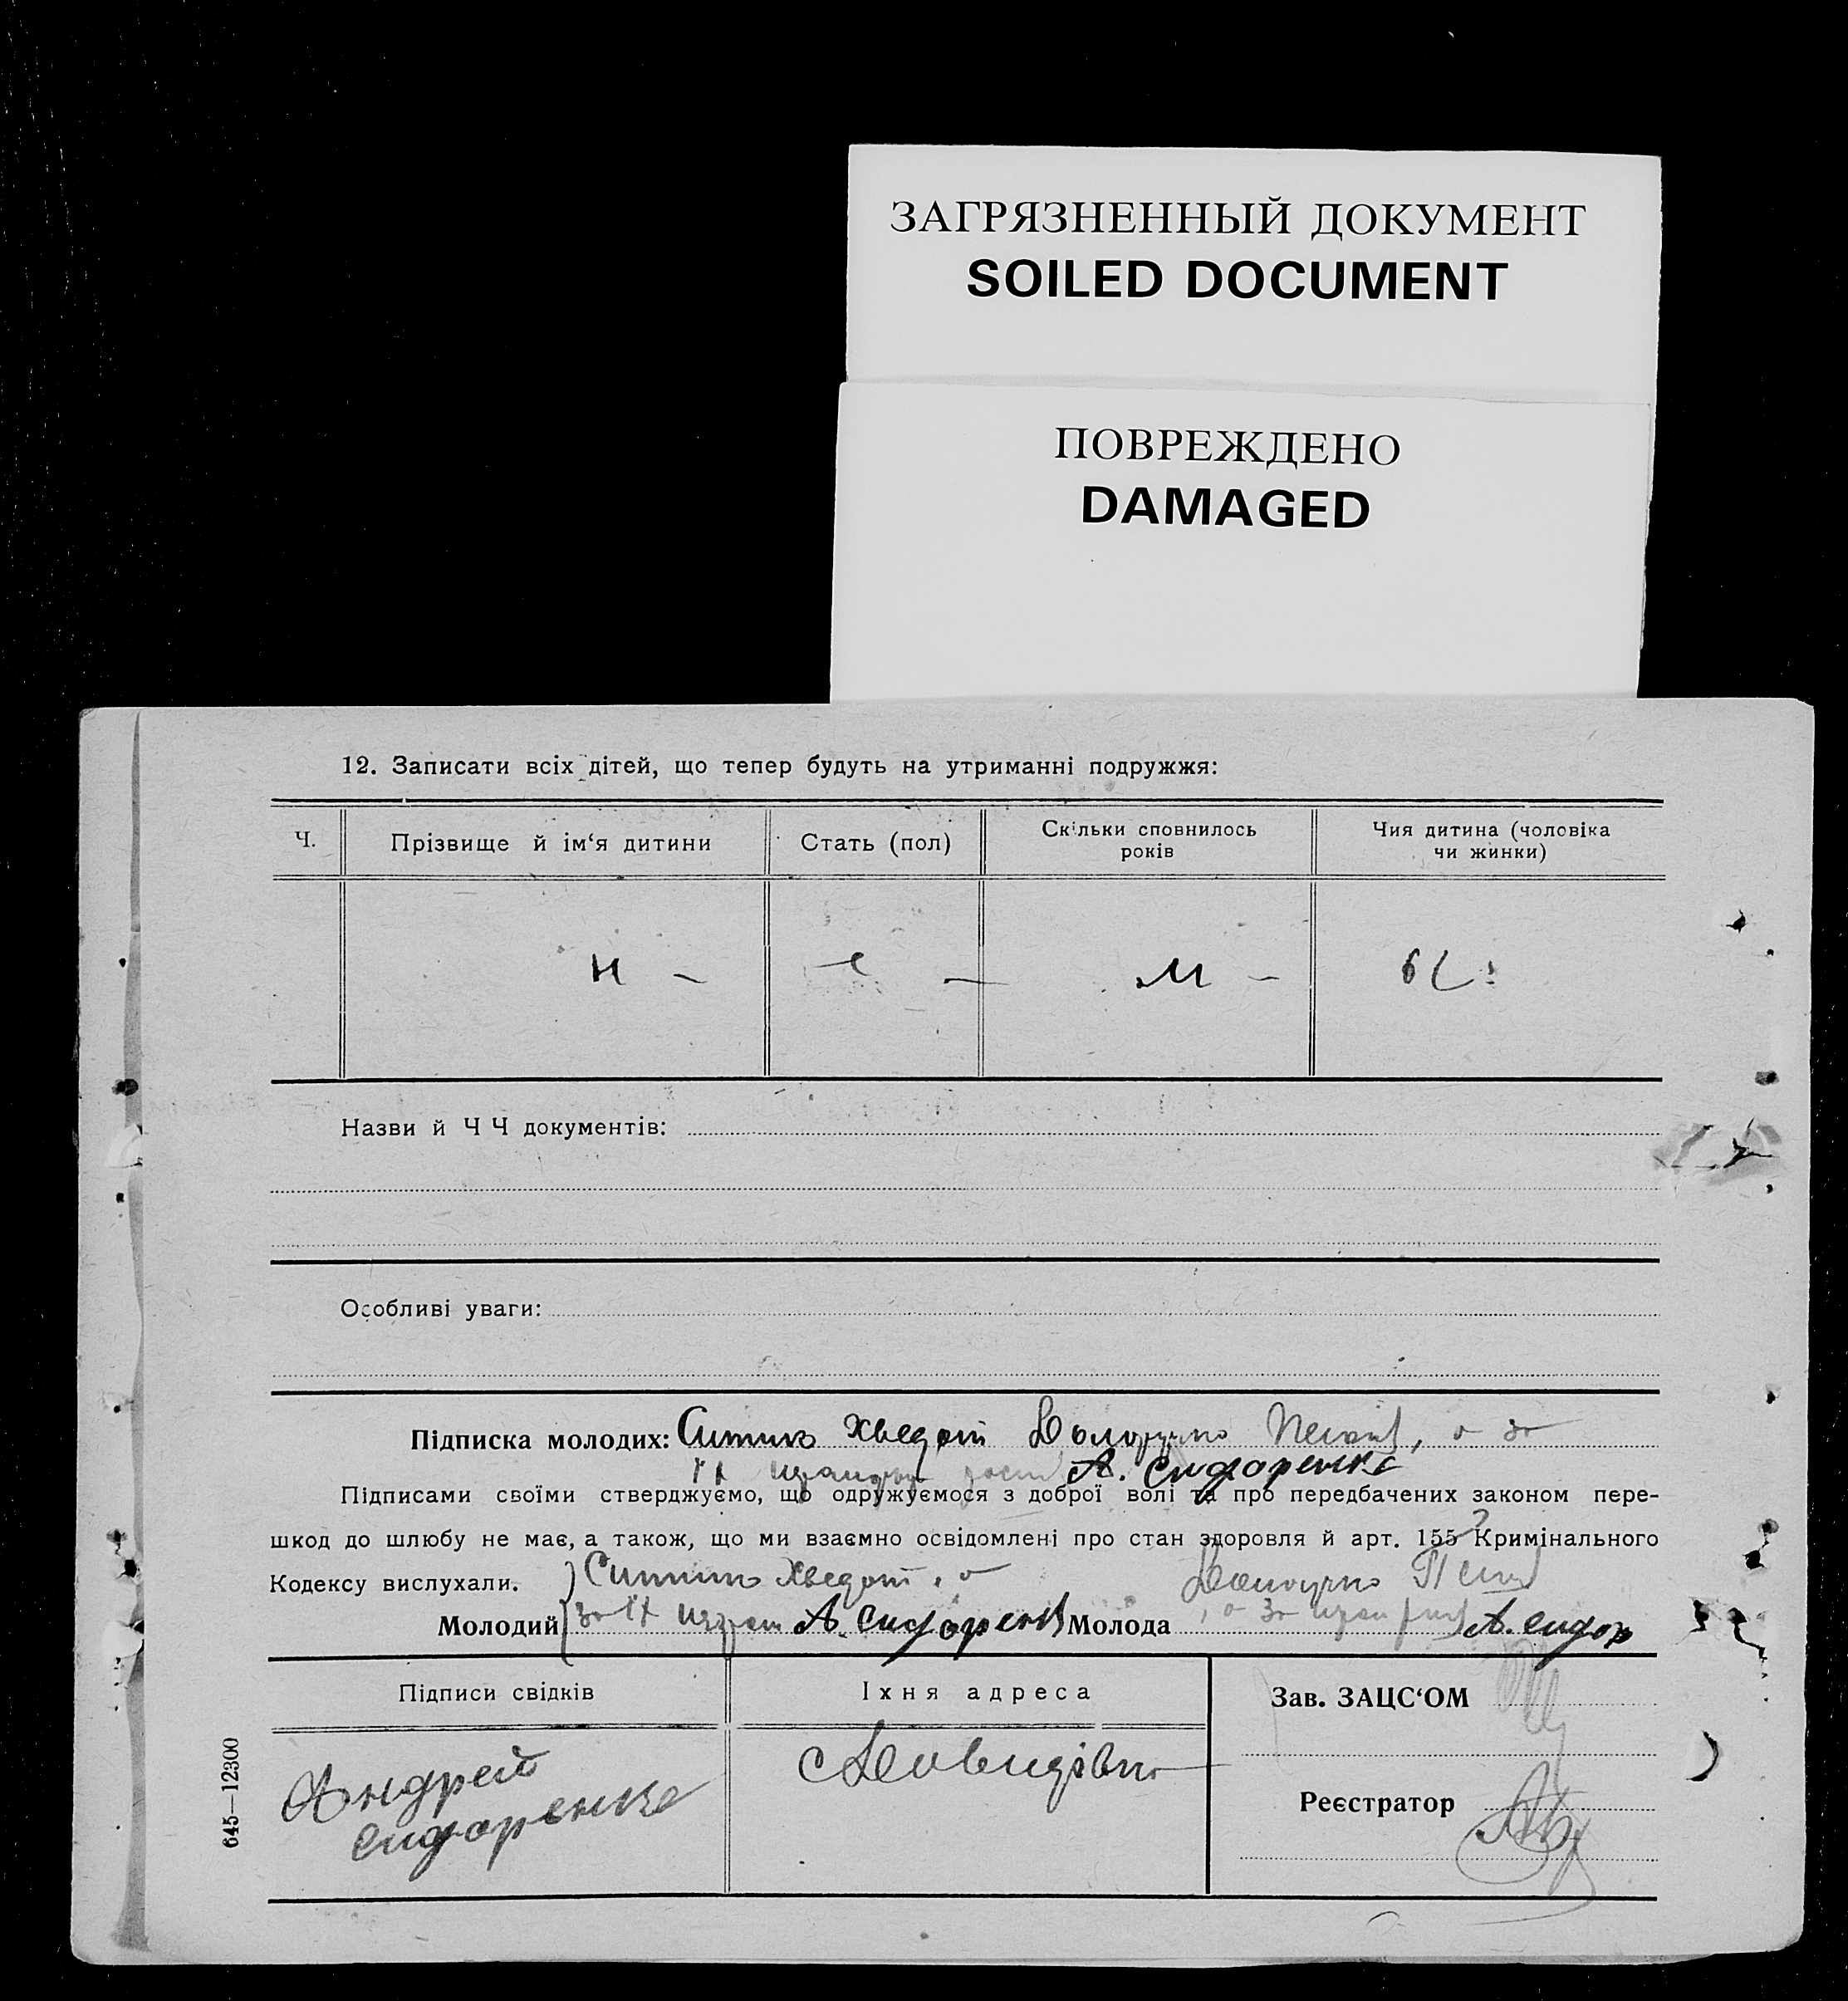 ЗАГРЯЗНЕННЫЙ ДОКУМЕНТ
SOILED DOCUMENT
ПОВРЕЖДЕНО
DAMAGED
12. Записати всіх дітей, що тепер будуть на утриманні подружжя:
Ч. Прізвище й ім‘я дитини Стать (пол) Скільки сповнилось років Чия дитина (чоловіка чи жинки)
Назви й Ч Ч документів:
Особливі уваги:
Підписка молодих: Хведот
А. Сидоренко
Підписами своїми стверджуємо, що одружуємося з доброї волі та про передбачених законом пере-
шкод до шлюбу не має, а також, що ми взаємно освідомлені про стан здоровля й арт. 155 Кримінального
Кодексу вислухали. Хведот
Молодий А. Сидорен Молода А. Сидор
Підписи свідків Їхня адреса Зав. ЗАЦС‘ОМ
Андрей
Сидоренко
Реєстратор
645—12300